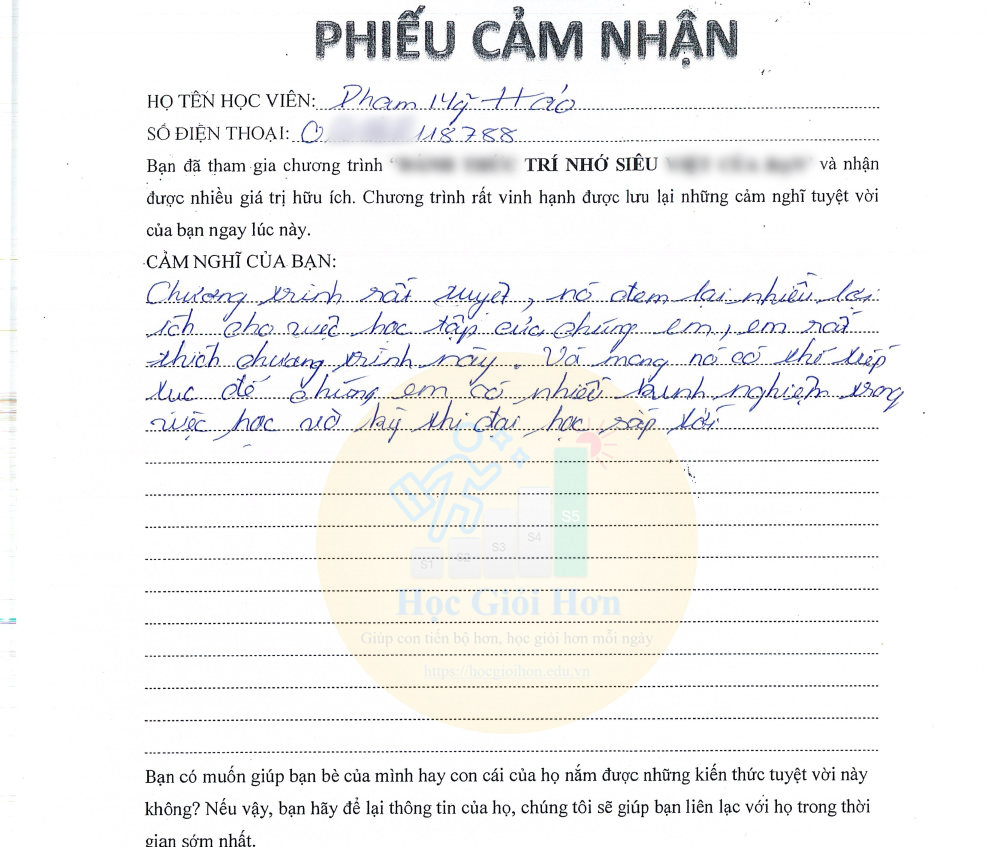 PHIẾU CẢM NHẬN
HỌ TÊN HỌC VIÊN: Phạm Mỹ Hảo
SỐ ĐIỆN THOẠI: 0 118788
Bạn đã tham gia chương trình " TRÍ NHỚ SIÊU " và nhận
được nhiều giá trị hữu ích. Chương trình rất vinh hạnh được lưu lại những cảm nghĩ tuyệt vời
của bạn ngay lúc này.
CẢM NGHĨ CỦA BẠN:
Chương trình rất tuyệt, nó đem lại nhiều lợi
ích cho việc học tập của chúng em, em rất
thích chương trình này. Và mong nó có thể tiếp
tục để chúng em có nhiều kinh nghiệm trong
việc học và kỳ thi đại học sắp tới
S1 S2 S3 S4 S5
Học Giỏi Hơn
Giúp con tiến bộ hơn, học giỏi hơn mỗi ngày
https://hocgioihon.edu.vn
Bạn có muốn giúp bạn bè của mình hay con cái của họ nắm được những kiến thức tuyệt vời này
không? Nếu vậy, bạn hãy để lại thông tin của họ, chúng tôi sẽ giúp bạn liên lạc với họ trong thời
gian sớm nhất.